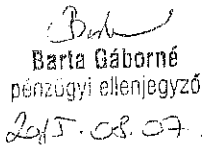 Barta Gáborné
pénzügyi ellenjegyző
2015.08.07.